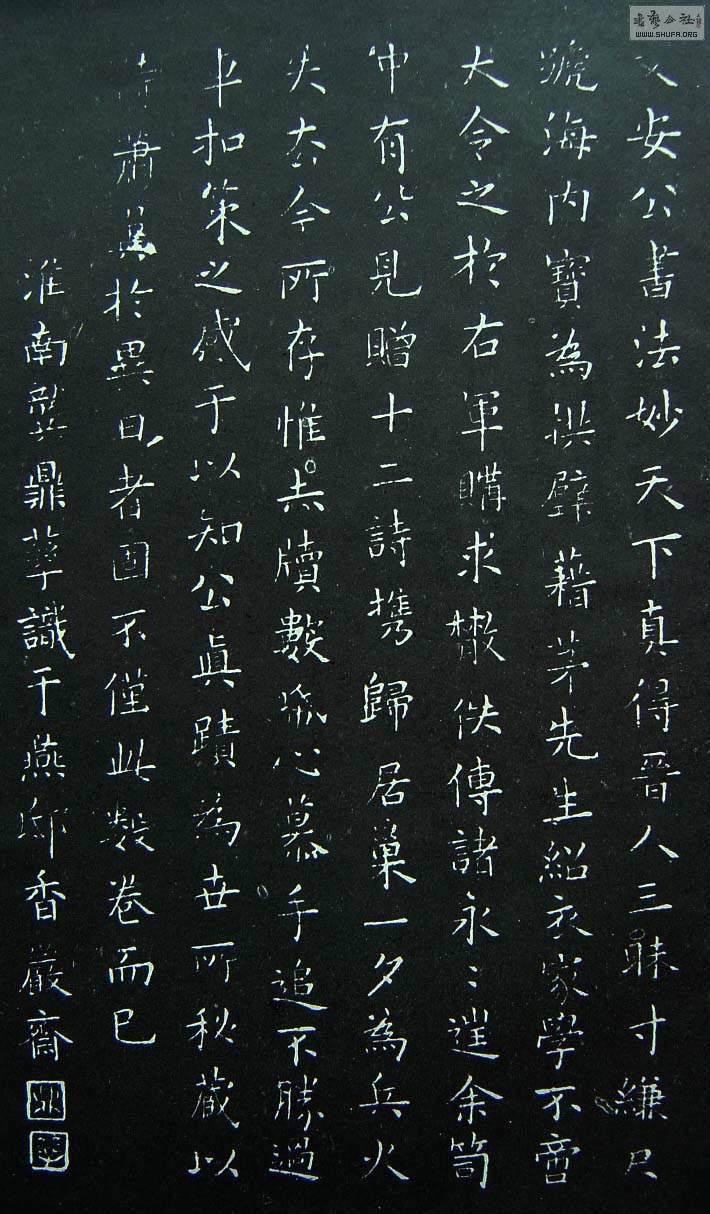 文安公書法妙天下真得晉人三昧寸縑尺
號海内寶為拱璧藉茅先生紹衣家學不啻
大令之於右軍購求散佚傳諸永〻遑余笥
中有公見贈十二詩携歸居巢一夕為兵火
失去今所存惟尺牘數紙心慕手追不勝過
車扣策之感于以知公真蹟為世所秋藏以
蕭其於異日者固不僅此數卷而已
淮南龔鼎孳識于燕邸香嚴齋
鼎孳
書藝公社
WWW.SHUFA.ORG